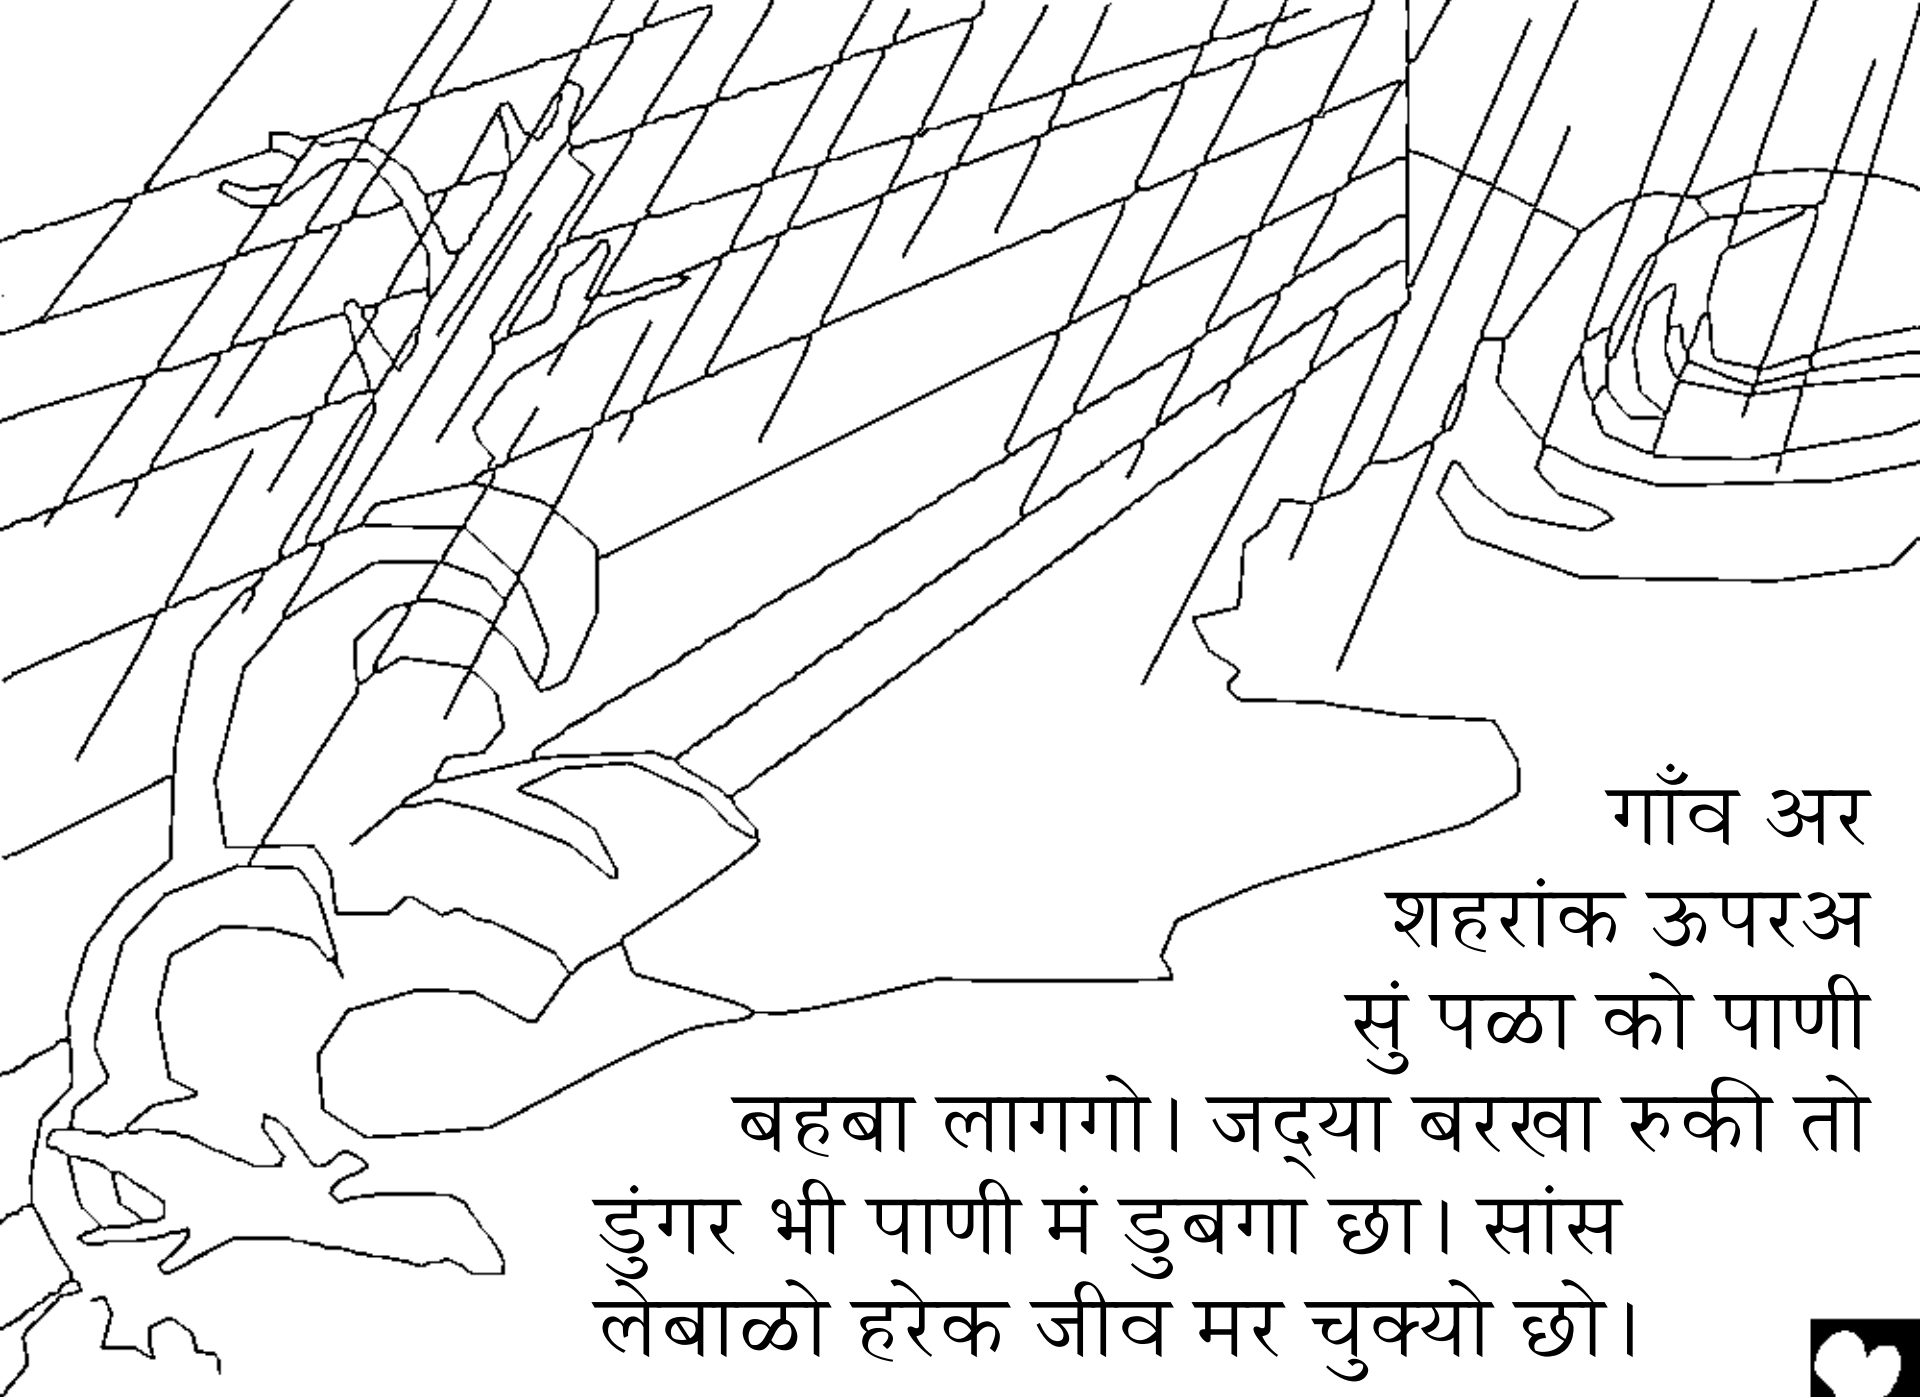 गाँव अर
शहरांक ऊपरअ
सुं पळा को पाणी
बहबा लागगो। जद्‌या बरखा रुकी तो
डुंगर भी पाणी मं डुबगा छा। सांस
लेबाळो हरेक जीव मर चुक्यो छो।